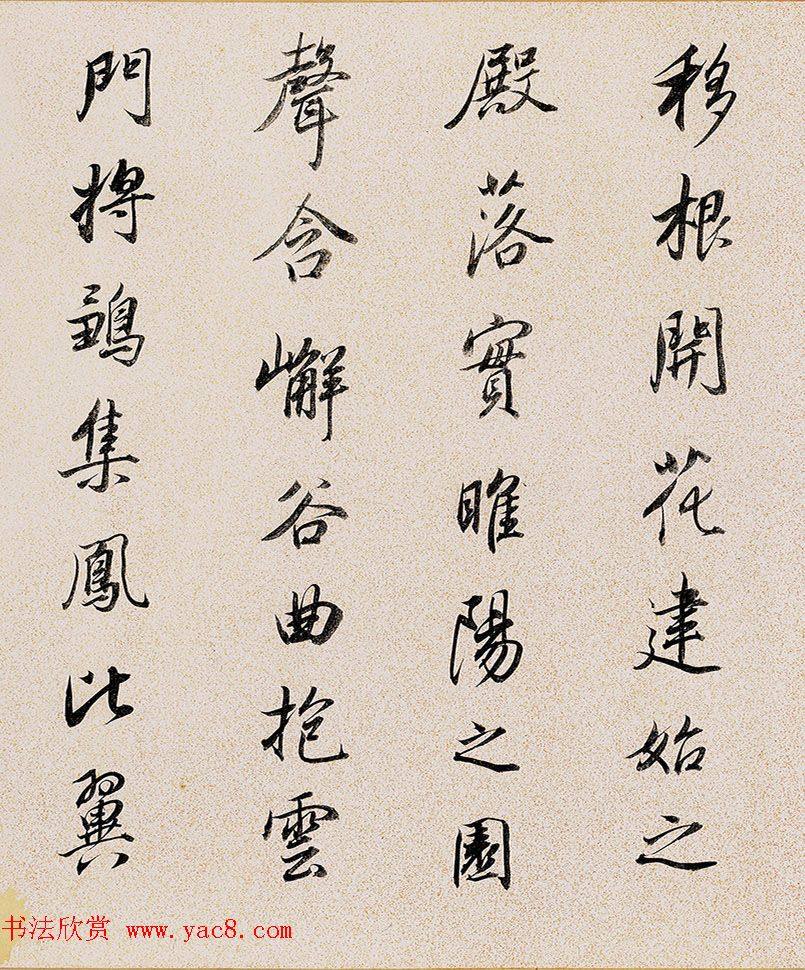 移根開花建始之
殿落實睢陽之園
聲含嶰谷曲抱雲
門將鶵集鳳比翼
书法欣赏 www.yac8.com